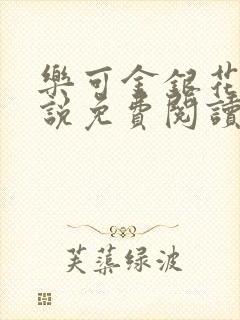 樂可金銀花
說免費閱讀
芙蕖绿波